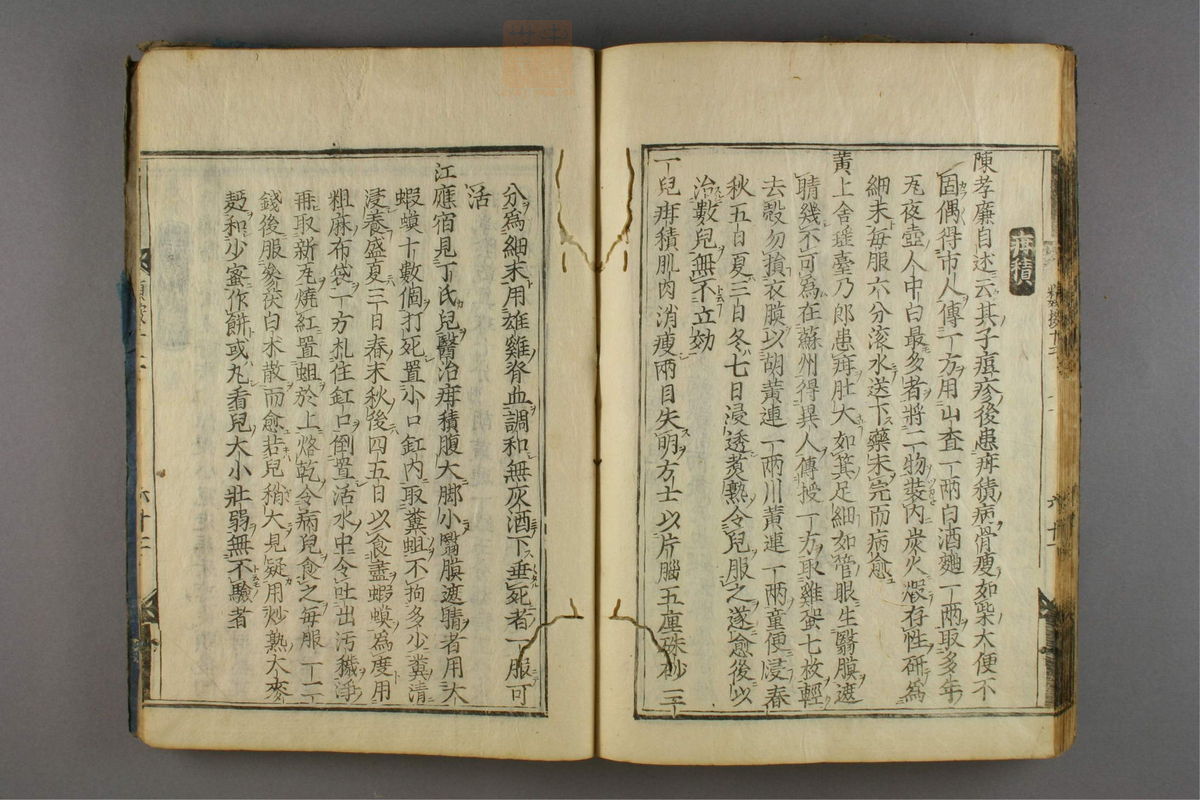 疳積
陳孝廉自述云其子瘟疹後患疳積病骨瘦如柴大便不
固偶得市人傳一方用山查一兩白酒麯一兩取多年
瓦夜壺人中白最多者將二物裝內炭火煅存性研為
細末每服六分滾水送下藥未完而病愈
黃上舍瑤臺乃郎患疳肚大如箕足細如管眼生翳膜遮
睛幾不可為在蘇州得異人傳授一方取雞蛋七枚輕
去殼勿損衣膜以胡黃連一兩川黃連一兩童便浸春
秋五日夏三日冬七日浸透煑熟令兒服之遂愈後以
治數兒無不立効
一兒疳積肌肉消瘦兩目失明方士以片腦五厘硃砂二千
分為細末用雄雞脊血調和無灰酒下垂死者一服可
活
江應宿見丁氏兒醫治疳積腹大脚小翳膜遮睛者用大
蝦蟆十數個打死置小口缸內取糞蛆不拘多少糞清
浸養盛夏三日春末秋後四五日以食盡蝦蟆為度用
粗麻布袋一方札住缸口倒置活水中令吐出汚穢淨
再取新瓦燒紅置蛆於上烙乾令病兒食之每服一二
錢後服參苓白朮散而愈若兒稍大見疑用炒熟大麥
麪和少蜜作餅或丸看兒大小壯弱無不驗者